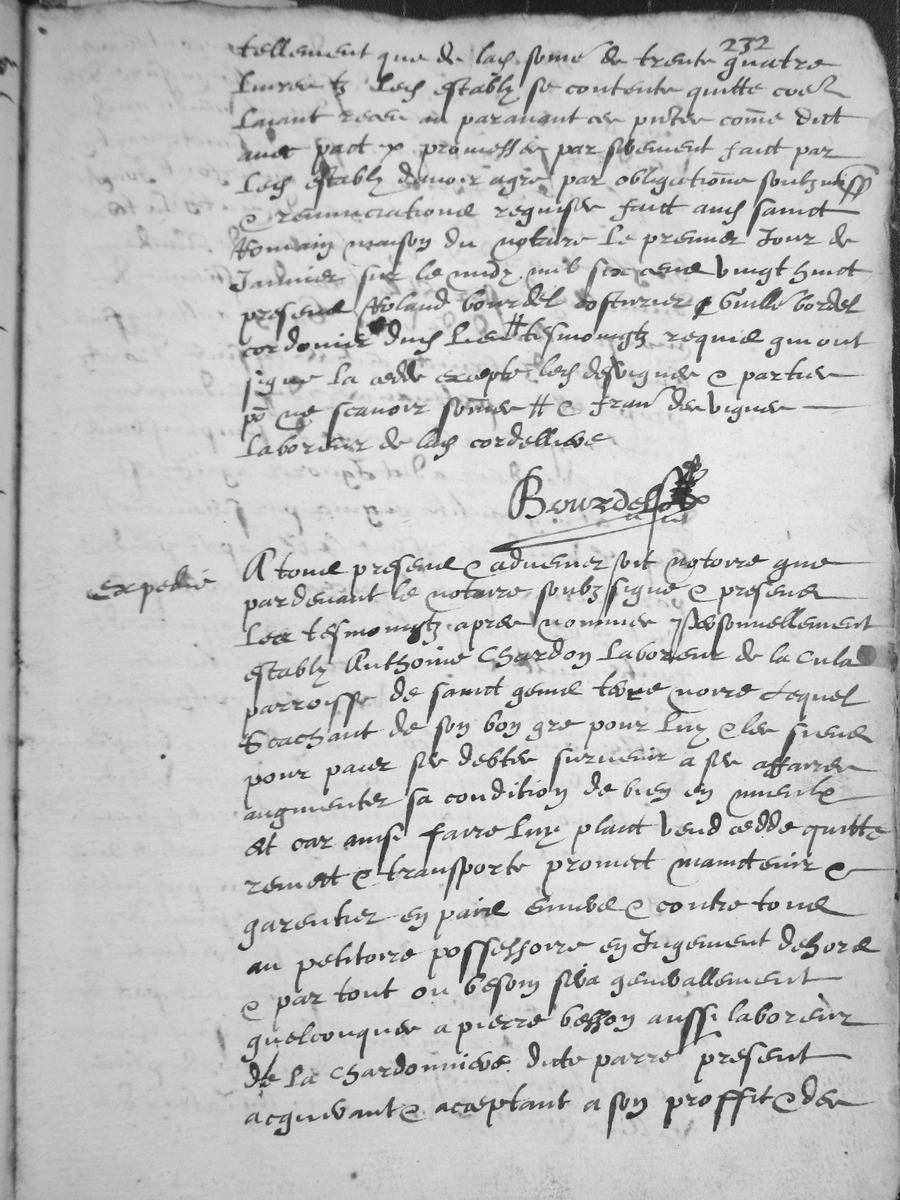 232
tellement que de lad some de trente quatre
Livres tz Led estably se contente quitte
Layant receu au paravant ces pntes comme dict
avec pact & promesses par serement faict par
Led estably davoir agre par obligationes soubzmiss
& renunciationes requises faict aud sainct
Romain maison du notaire le premier Jour de
Janvier sur le midy mil six cens vingt huict
presens Roland bourdel costurier & Guille bordel
cordonier dud Lieu # tesmoingtz requis qui ont
signe la cedde excepte led desvignes & parties
po ne scavoir somes # & fran desvignes
Laboreur de lad cordelliere
Bourdel
Expedie
A tous presens & advenier soit notoire que
pardevant le notaire soubzsigne & presens
Les tesmoingtz apres nommes personnellement
estably Anthoine Chardon Laboreur de la Cula
parroisse de sainct genis terre noire Lequel
Scachant de son bon gre pour Luy & les siens
pour paier ses debtes survenir a ses affaires
augmenter sa condition de bien en mieulx
et car ainsi faire luy plaict vend cedde quitte
remect & transporte promect mainctenir &
garentier en paix envers & contre tous
au petitoire possessoire en Jugement dehors
& par tout ou besoin sera generallement
quelconques a pierre besson aussi laboreur
de La Chardonniere dicte parre present
acquerant & acceptant a son proffit & des